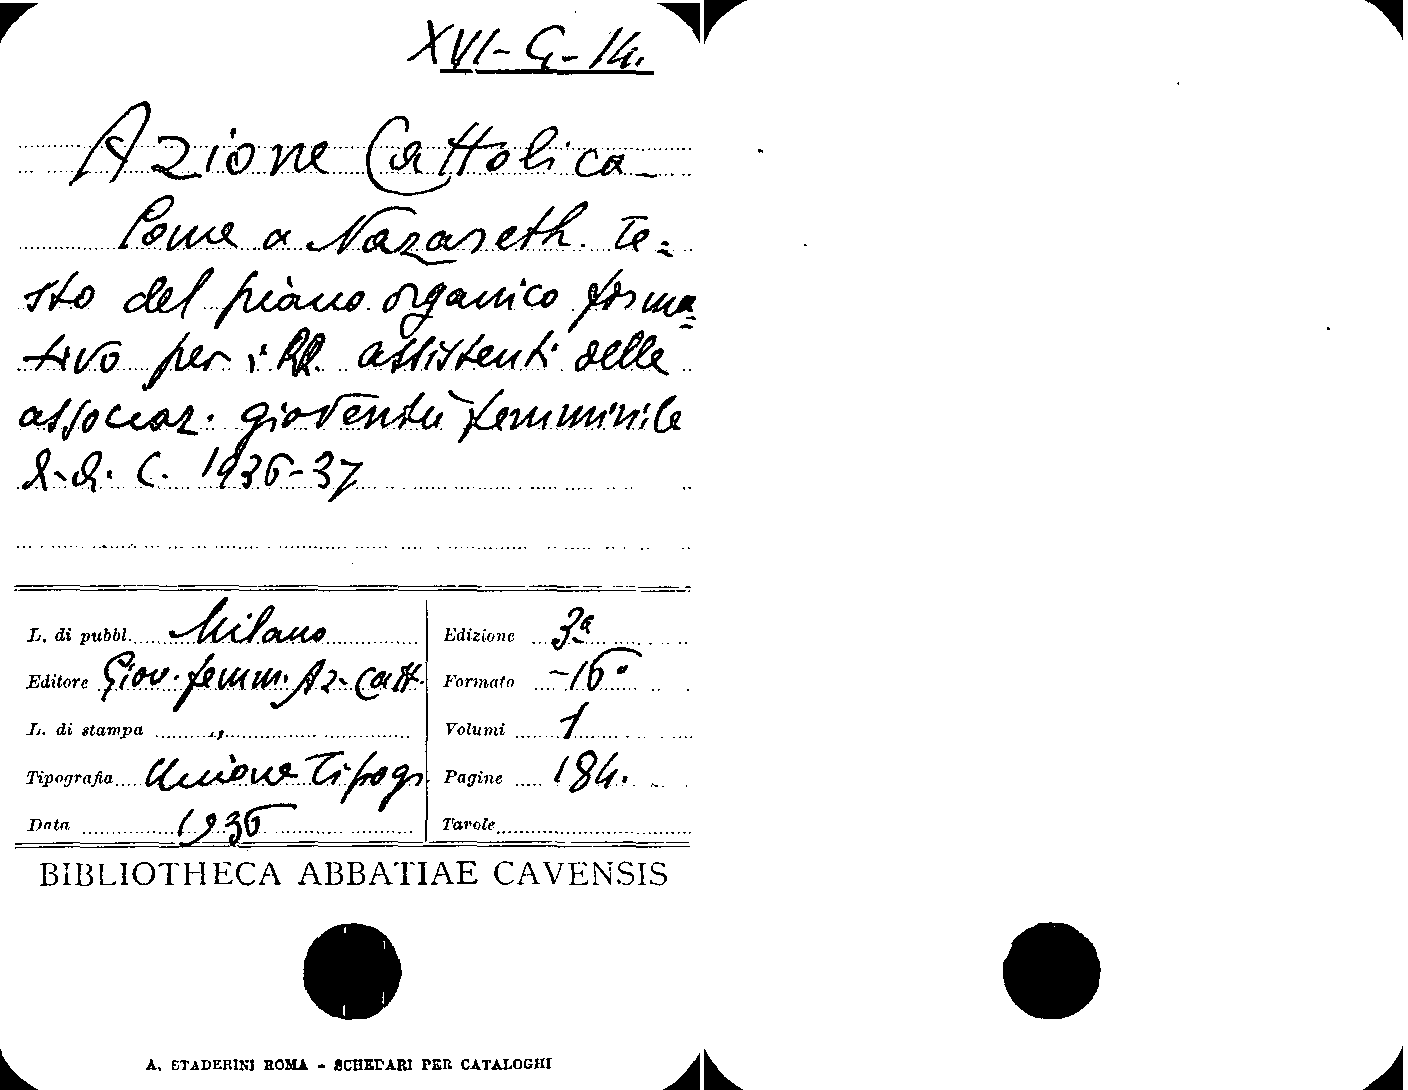 XVI-G-14.
Azione Cattolica
Come a Nazareth. Te=
sto del piano organico forma=
tivo per i RR. assistenti delle
associaz. gioventù femminile
A. C. 1936-37
L. di pubbl. Milano
Edizione 3a
Editore Giov. femm. Az. Catt.
Formato -16°
L. di stampa ,,
Volumi 1
Tipografia Unione Tipogr
Pagine 184.
Data 1936
Tavole
BIBLIOTHECA ABBATIAE CAVENSIS
A. STADERINI ROMA - SCHEDARI PER CATALOGHI